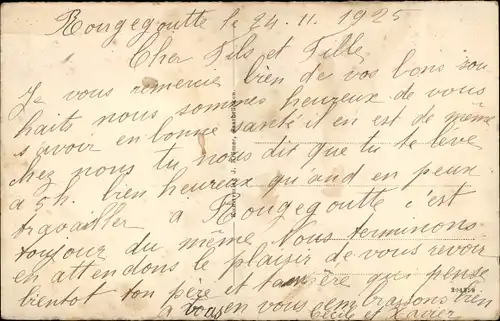 Rougegoutte le 24.11.1925
Cher Fils et Fille
Je vous remercie bien de vos bons sou
haits nous sommes heureux de vous
savoir en bonne santé il en est de même
chez nous tu nous dit que tu te lève
a 5h. bien heureux qu'and en peux
travailler a Rougegoutte c'est
toujour du même Nous terminons
en attendons le plaisir de vous revoir
bientot ton père et ta mère qui pense
a vous en vous embrassons bien
Cécile et Xavier